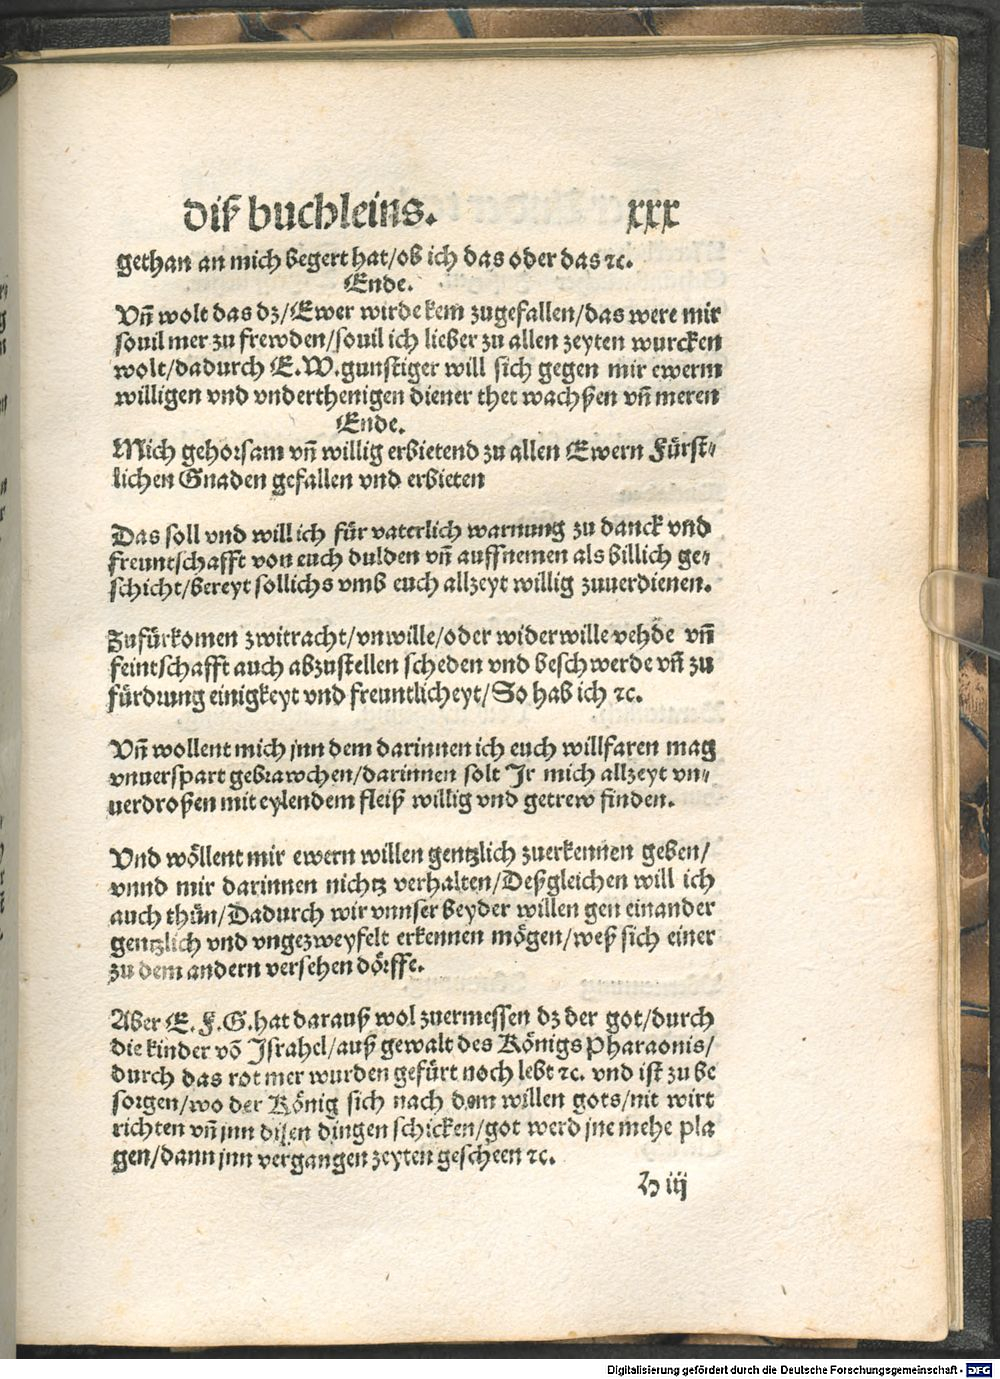 diß buchleins. xxx
gethan an mich begert hat/ob ich das oder das ⁊c.
Ende.
Vñ wolt das dz/Ewer wirde kem zugefallen/das were mir
souil mer zu frewden/souil ich lieber zu allen zeyten wurcken
wolt/dadurch E.W.gunstiger will sich gegen mir ewerm
willigen vnd vnderthenigen diener thet wachßen vñ meren
Ende.
Mich gehorsam vñ willig erbietend zu allen Ewern Fürst⸗
lichen Gnaden gefallen vnd erbieten
Das soll vnd will ich für vaterlich warnung zu danck vnd
freuntschafft von euch dulden vñ auffnemen als billich ge⸗
schicht/bereyt sollichs vmb euch allzeyt willig zuuerdienen.
Zufürkomen zwitracht/vnwille/oder widerwille vehde vñ
feintschafft auch abzustellen scheden vnd beschwerde vñ zu
fürdrung einigkeyt vnd freuntlicheyt/So hab ich ⁊c.
Vñ wollent mich jnn dem darinnen ich euch willfaren mag
vnuerspart gebrawchen/darinnen solt Jr mich allzeyt vn⸗
uerdroßen mit eylendem fleiß willig vnd getrew finden.
Vnd wöllent mir ewern willen gentzlich zuerkennen geben/
vnnd mir darinnen nichtz verhalten/Deßgleichen will ich
auch thün/Dadurch wir vnnser beyder willen gen einander
gentzlich vnd vngezweyfelt erkennen mögen/weß sich einer
zu dem andern versehen dörffe.
Aber E.F.G.hat darauß wol zuermessen dz der got/durch
die kinder võ Jsrahel/auß gewalt des Königs Pharaonis/
durch das rot mer wurden gefürt noch lebt ⁊c. vnd ist zu be
sorgen/wo der König sich nach dem willen gots/nit wirt
richten vñ jnn disen dingen schicken/got werd jne mehe pla
gen/dann jnn vergangen zeyten gescheen ⁊c.
iij
Digitalisierung gefördert durch die Deutsche Forschungsgemeinschaft - DFG